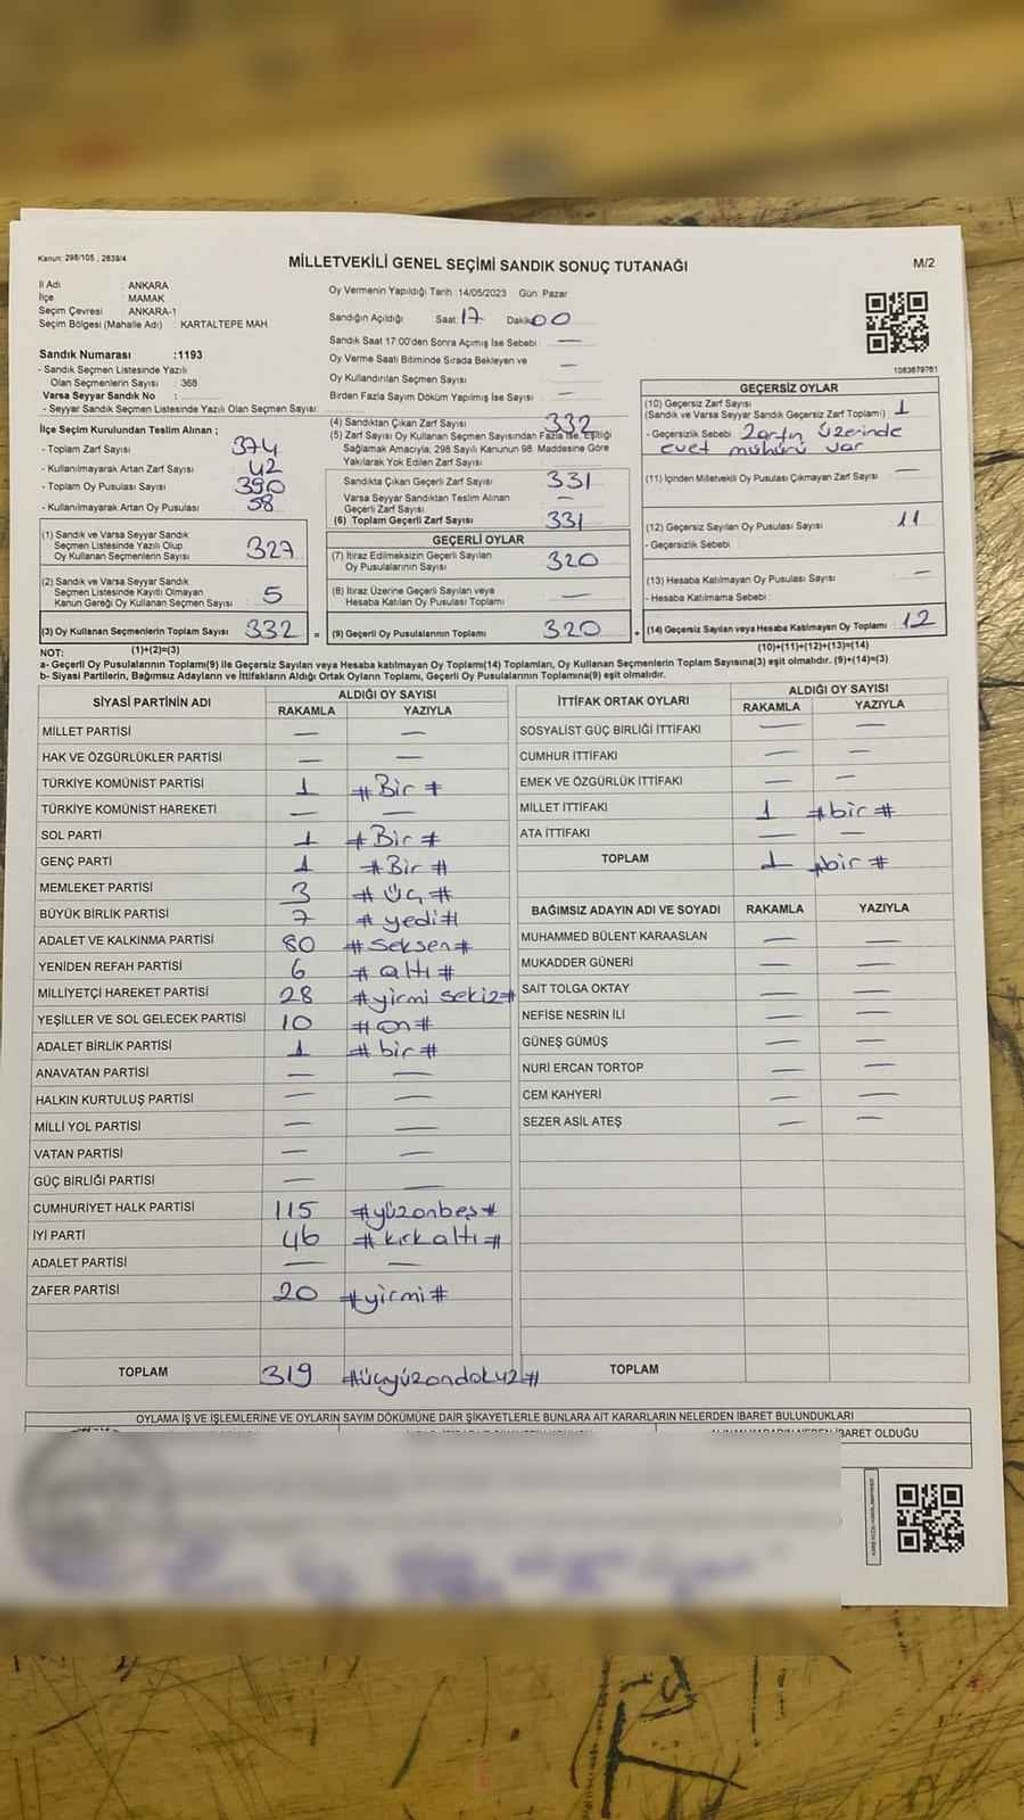 Kanun: 298/105, 2839/4
MİLLETVEKİLİ GENEL SEÇİMİ SANDIK SONUÇ TUTANAĞI
M/2
İl Adı : ANKARA
İlçe : MAMAK
Seçim Çevresi : ANKARA-1
Seçim Bölgesi (Mahalle Adı) : KARTALTEPE MAH.
Oy Vermenin Yapıldığı Tarih :14/05/2023 Gün: Pazar
Sandığın Açıldığı Saat: 17 Dakika: 00
Sandık Saat 17:00'den Sonra Açımış İse Sebebi : —
Oy Verme Saati Bitiminde Sırada Bekleyen ve
Oy Kullandırılan Seçmen Sayısı —
Birden Fazla Sayım Döküm Yapılmış İse Sayısı : —
1083679761
Sandık Numarası :1193
- Sandık Seçmen Listesinde Yazılı
Olan Seçmenlerin Sayısı : 368
Varsa Seyyar Sandık No :
- Seyyar Sandık Seçmen Listesinde Yazılı Olan Seçmen Sayısı:
İlçe Seçim Kurulundan Teslim Alınan ;
- Toplam Zarf Sayısı 374
- Kullanılmayarak Artan Zarf Sayısı 42
- Toplam Oy Pusulası Sayısı 390
- Kullanılmayarak Artan Oy Pusulası 58
(1) Sandık ve Varsa Seyyar Sandık
Seçmen Listesinde Yazılı Olup
Oy Kullanan Seçmenlerin Sayısı 327
(2) Sandık ve Varsa Seyyar Sandık
Seçmen Listesinde Kayıtlı Olmayan
Kanun Gereği Oy Kullanan Seçmen Sayısı 5
(3) Oy Kullanan Seçmenlerin Toplam Sayısı 332
(1)+(2)=(3)
(4) Sandıktan Çıkan Zarf Sayısı 332
(5) Zarf Sayısı Oy Kullanan Seçmen Sayısından Fazla İse, Eşitliği
Sağlamak Amacıyla; 298 Sayılı Kanunun 98. Maddesine Göre
Yakılarak Yok Edilen Zarf Sayısı
Sandıkta Çıkan Geçerli Zarf Sayısı 331
Varsa Seyyar Sandıktan Teslim Alınan
Geçerli Zarf Sayısı —
(6) Toplam Geçerli Zarf Sayısı 331
GEÇERLİ OYLAR
(7) İtiraz Edilmeksizin Geçerli Sayılan
Oy Pusulalarının Sayısı 320
(8) İtiraz Üzerine Geçerli Sayılan veya
Hesaba Katılan Oy Pusulası Toplamı —
= (9) Geçerli Oy Pusulalarının Toplamı 320
GEÇERSİZ OYLAR
(10) Geçersiz Zarf Sayısı
(Sandık ve Varsa Seyyar Sandık Geçersiz Zarf Toplamı) 1
- Geçersizlik Sebebi : Zarfın üzerinde
evet mühürü var
(11) İçinden Milletvekili Oy Pusulası Çıkmayan Zarf Sayısı —
(12) Geçersiz Sayılan Oy Pusulası Sayısı 11
- Geçersizlik Sebebi :
(13) Hesaba Katılmayan Oy Pusulası Sayısı —
- Hesaba Katılmama Sebebi :
+ (14) Geçersiz Sayılan veya Hesaba Katılmayan Oy Toplamı 12
(10)+(11)+(12)+(13)=(14)
NOT:
a- Geçerli Oy Pusulalarının Toplamı(9) ile Geçersiz Sayılan veya Hesaba katılmayan Oy Toplamı(14) Toplamları, Oy Kullanan Seçmenlerin Toplam Sayısına(3) eşit olmalıdır. (9)+(14)=(3)
b- Siyasi Partilerin, Bağımsız Adayların ve İttifakların Aldığı Ortak Oyların Toplamı, Geçerli Oy Pusulalarının Toplamına(9) eşit olmalıdır.
SİYASİ PARTİNİN ADI ALDIĞI OY SAYISI
RAKAMLA YAZIYLA
MİLLET PARTİSİ — —
HAK VE ÖZGÜRLÜKLER PARTİSİ — —
TÜRKİYE KOMÜNİST PARTİSİ 1 #Bir#
TÜRKİYE KOMÜNİST HAREKETİ — —
SOL PARTİ 1 #Bir#
GENÇ PARTİ 1 #Bir#
MEMLEKET PARTİSİ 3 #üç#
BÜYÜK BİRLİK PARTİSİ 7 #yedi#
ADALET VE KALKINMA PARTİSİ 80 #Seksen#
YENİDEN REFAH PARTİSİ 6 #altı#
MİLLİYETÇİ HAREKET PARTİSİ 28 #yirmi sekiz#
YEŞİLLER VE SOL GELECEK PARTİSİ 10 #on#
ADALET BİRLİK PARTİSİ 1 #bir#
ANAVATAN PARTİSİ — —
HALKIN KURTULUŞ PARTİSİ — —
MİLLİ YOL PARTİSİ — —
VATAN PARTİSİ — —
GÜÇ BİRLİĞİ PARTİSİ — —
CUMHURİYET HALK PARTİSİ 115 #yüzonbeş#
İYİ PARTİ 46 #kırkaltı#
ADALET PARTİSİ — —
ZAFER PARTİSİ 20 #yirmi#
TOPLAM 319 #üçyüzondokuz#
İTTİFAK ORTAK OYLARI ALDIĞI OY SAYISI
RAKAMLA YAZIYLA
SOSYALİST GÜÇ BİRLİĞİ İTTİFAKI — —
CUMHUR İTTİFAKI — —
EMEK VE ÖZGÜRLÜK İTTİFAKI — —
MİLLET İTTİFAKI 1 #bir#
ATA İTTİFAKI — —
TOPLAM 1 #bir#
BAĞIMSIZ ADAYIN ADI VE SOYADI RAKAMLA YAZIYLA
MUHAMMED BÜLENT KARAASLAN — —
MUKADDER GÜNERİ — —
SAİT TOLGA OKTAY — —
NEFİSE NESRİN İLİ — —
GÜNEŞ GÜMÜŞ — —
NURİ ERCAN TORTOP — —
CEM KAHYERİ — —
SEZER ASİL ATEŞ — —
TOPLAM
OYLAMA İŞ VE İŞLEMLERİNE VE OYLARIN SAYIM DÖKÜMÜNE DAİR ŞİKAYETLERLE BUNLARA AİT KARARLARIN NELERDEN İBARET BULUNDUKLARI
İBARET OLDUĞU